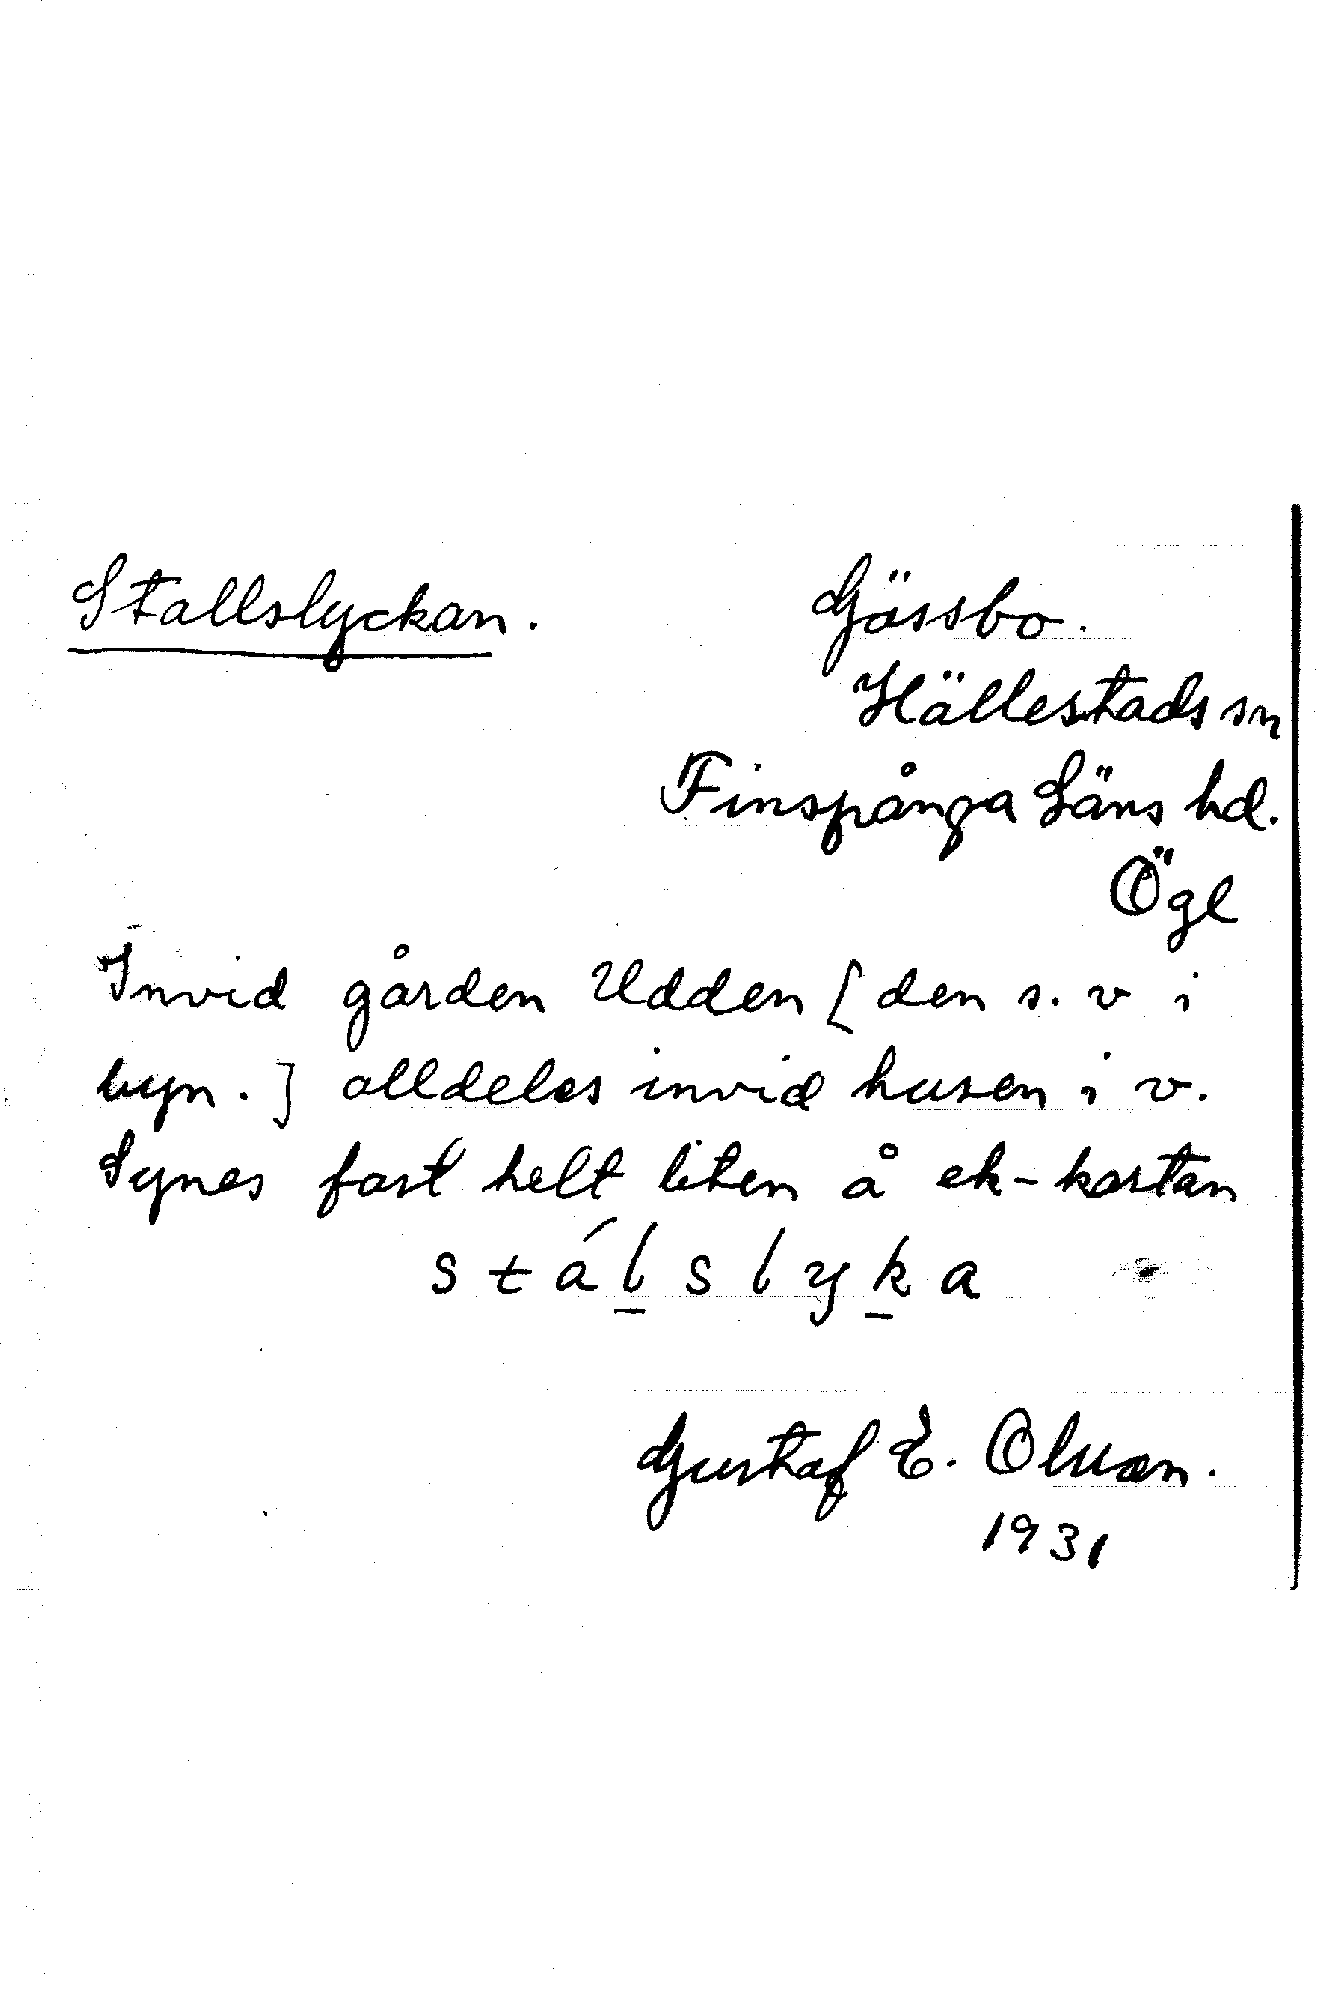 Stallslyckan.
Gässbo.
Hällestads sn
Finspånga Läns hd.
Ögl
Invid gården Udden [den s. v i
byn.] alldeles invid husen i v.
Synes fast helt liten å ek-kartan
stálslyka
Gustaf E. Olsson.
1931